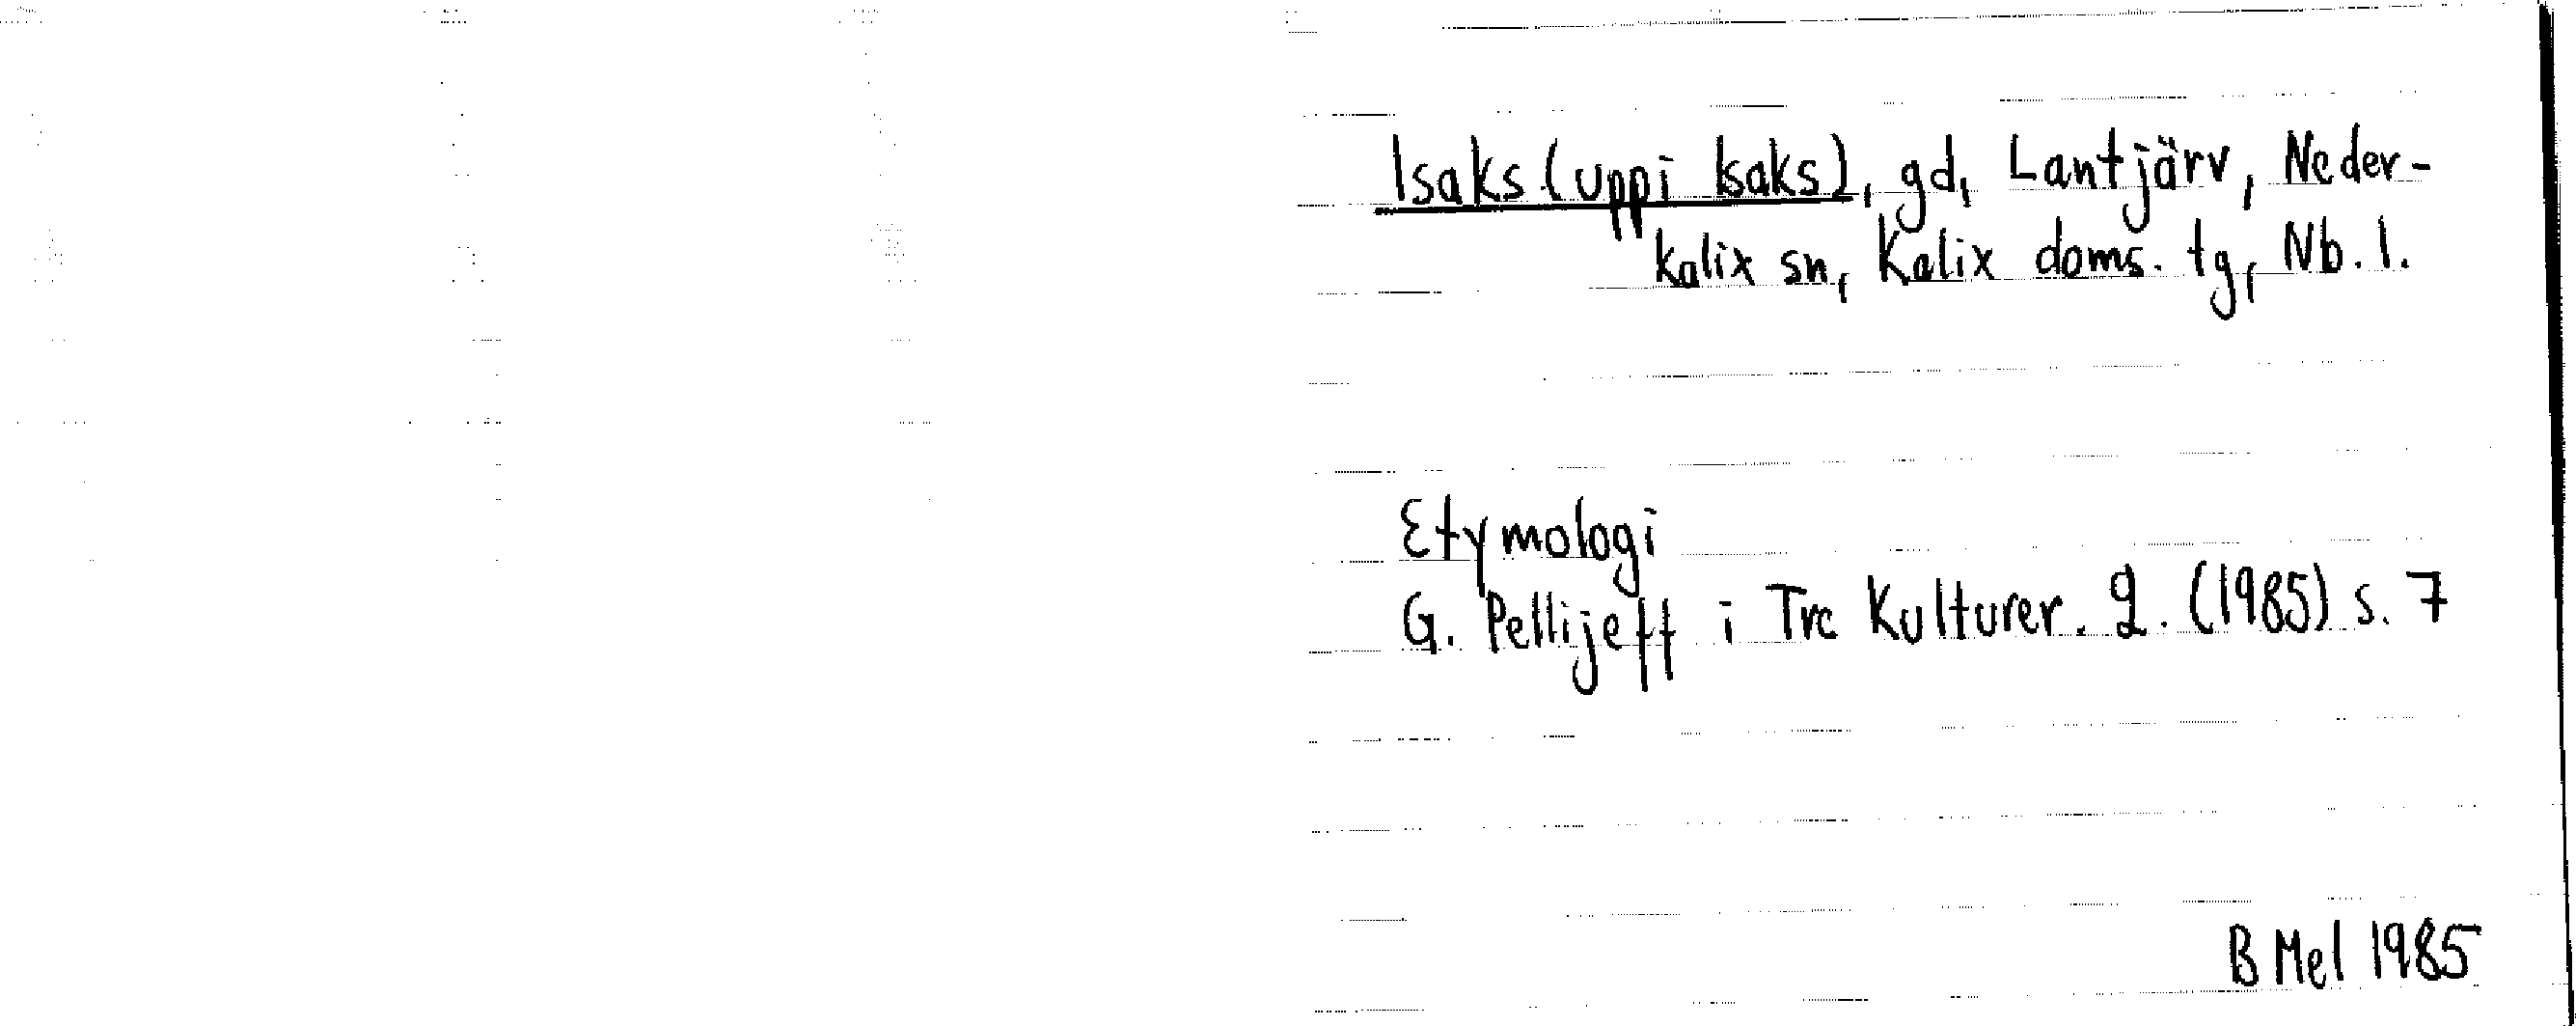 Isaks (uppi Isaks), gd, Lantjärv, Neder-
kalix sn, Kalix doms. tg, Nb. l.
Etymologi
G. Pellijeff i Tre Kulturer. 2. (1985) s. 7
B Mel 1985